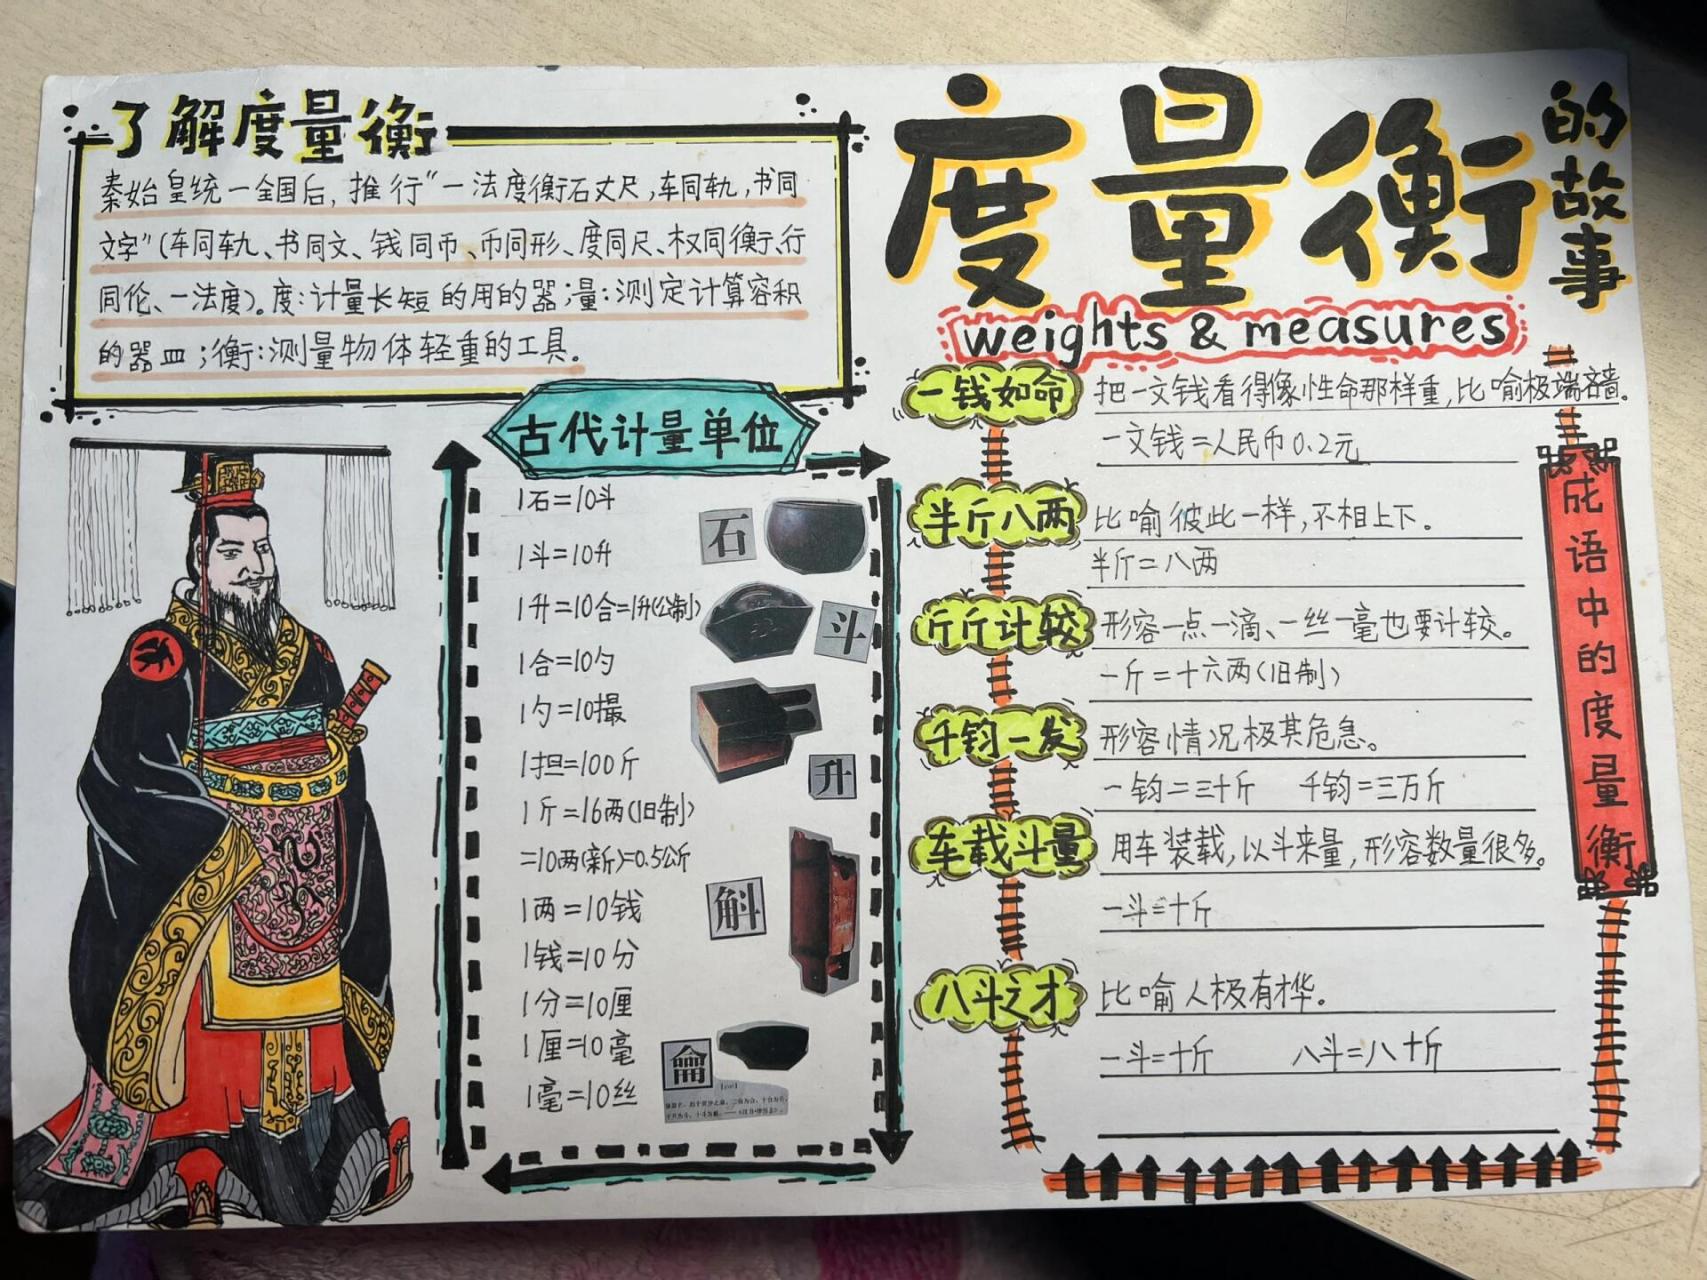 了解度量衡
秦始皇统一全国后，推行“一法度衡石丈尺，车同轨，书同
文字”（车同轨、书同文、钱同币、币同形、度同尺、权同衡、行
同伦、一法度）。度：计量长短的用的器；量：测定计算容积
的器皿；衡：测量物体轻重的工具。
度量衡
的故事
weights & measures
古代计量单位
1石=10斗
1斗=10升
1升=10合=1升(公制)
1合=10勺
1勺=10撮
1担=100斤
1斤=16两(旧制)
=10两(新)=0.5公斤
1两=10钱
1钱=10分
1分=10厘
1厘=10毫
1毫=10丝
石
斗
升
斛
龠
一钱如命
把一文钱看得像性命那样重，比喻极端吝啬。
一文钱=人民币0.2元
半斤八两
比喻彼此一样，不相上下。
半斤=八两
斤斤计较
形容一点一滴、一丝一毫也要计较。
一斤=十六两(旧制)
千钧一发
形容情况极其危急。
一钧=三十斤 千钧=三万斤
车载斗量
用车装载，以斗来量，形容数量很多。
一斗=十斤
八斗之才
比喻人极有才华。
一斗=十斤 八斗=八十斤
成语中的度量衡